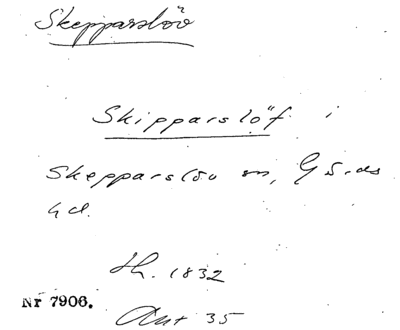 Skepparslöv
Skipparslöf i
Skepparslöv sn, Gärds
hd.
Th. 1832
Nr 7906.
Ant 35